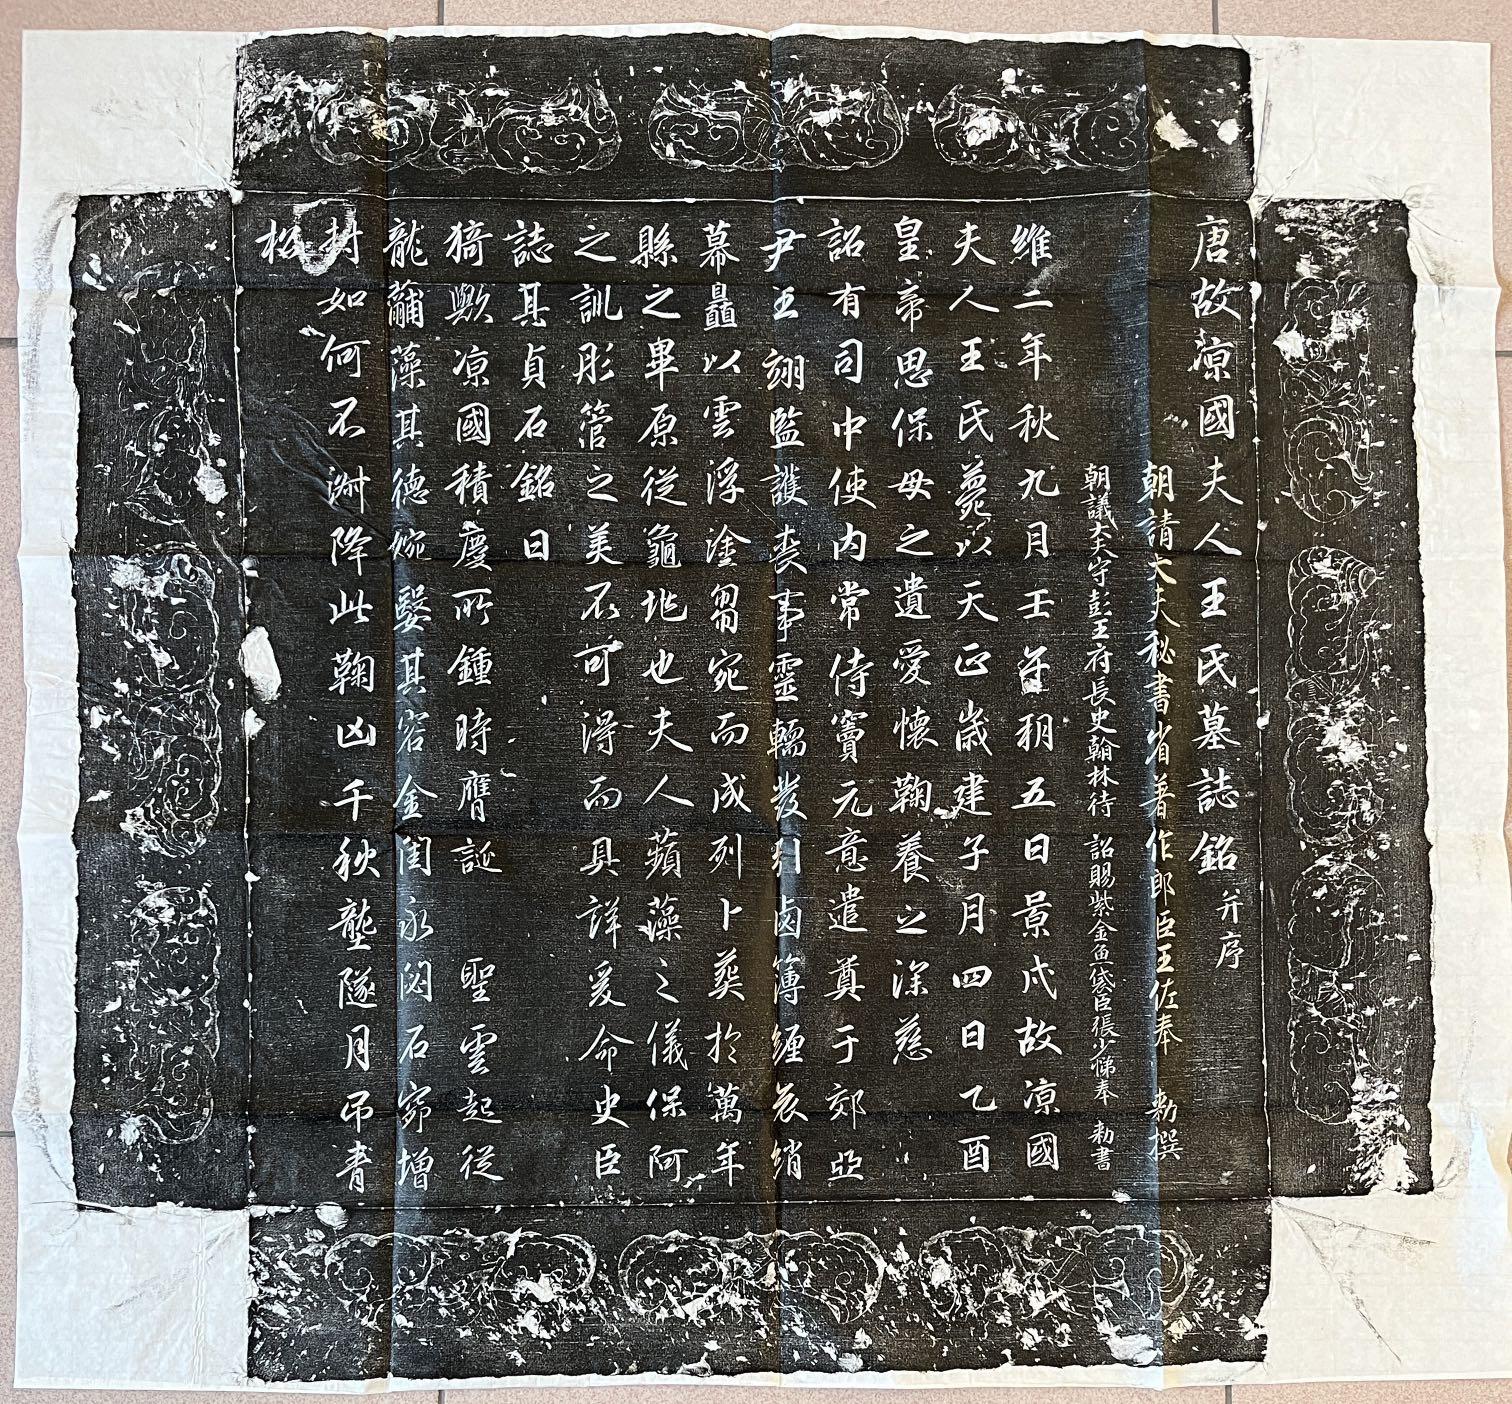 唐故涼國夫人王氏墓誌銘并序
朝請大夫秘書省著作郎臣王佐奉　勅撰
朝議大夫守彭王府長史翰林待　詔賜紫金魚袋臣張少悌奉　勅書
維二年秋九月壬午朔五日景戌故涼國
夫人王氏薨以天正歲建子月四日乙酉
皇帝思保母之遺愛懷鞠養之深慈
詔有司中使內常侍竇元意遣奠于郊亞
尹王翊監護喪事靈轜發引鹵簿纏哀綃
幕晶以雲浮塗芻宛而成列卜葬於萬年
縣之畢原從龜兆也夫人蘋藻之儀保阿
之訓彤管之美不可得而具詳爰命史臣
誌其貞石銘曰
猗歟涼國積慶所鍾時膺誕　聖雲起從
龍黼藻其德婉嫕其容金閨永閟石窌增
封如何不淑降此鞠凶千秋壟隧月吊青
松